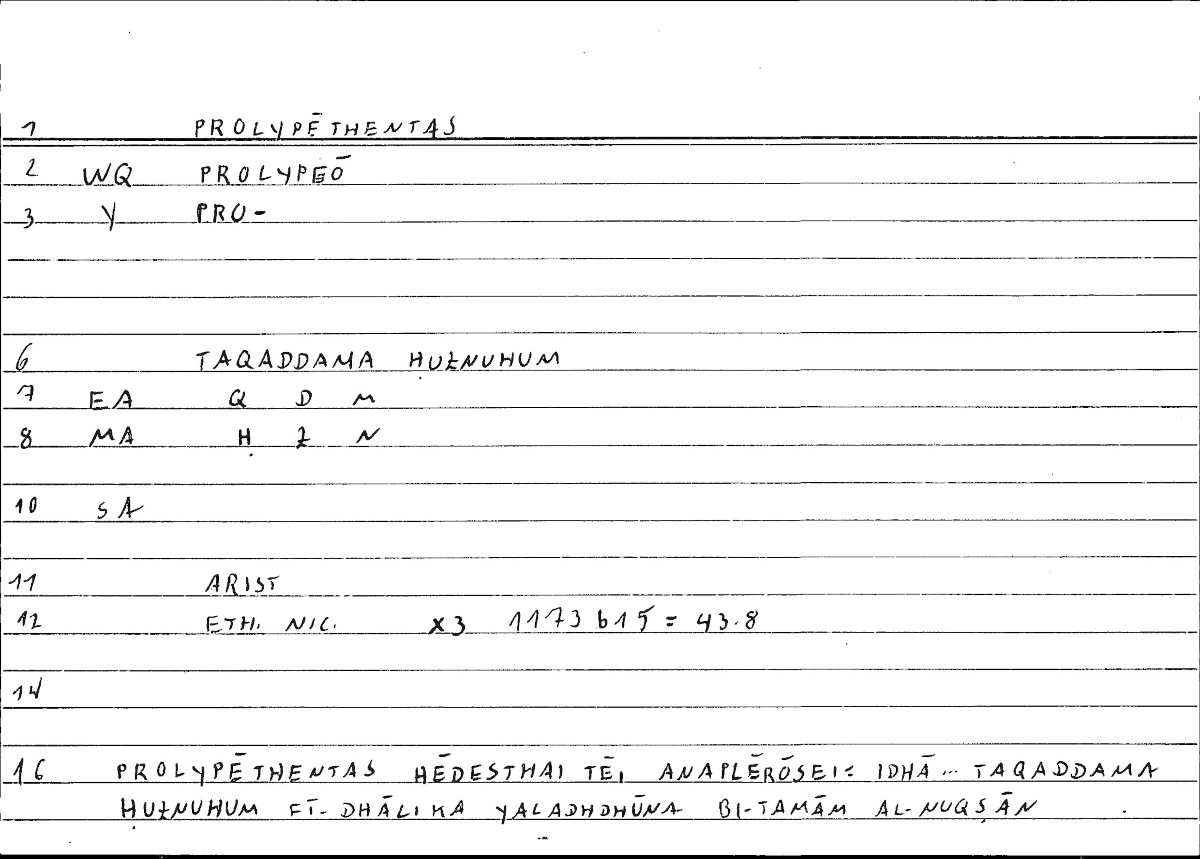 1 PROLYPĒTHENTAS
2 WQ PROLYPEŌ
3 Y PRO-
6 TAQADDAMA ḤUZNUHUM
7 EA Q D M
8 MA Ḥ Z N
10 SA
11 ARIST
12 ETH. NIC. X3 1173 b15 = 43.8
14
16 PROLYPĒTHENTAS HĒDESTHAI TĒI ANAPLĒRŌSEI = IDHĀ ... TAQADDAMA
ḤUZNUHUM FĪ-DHĀLIKA YALADHDHŪNA BI-TAMĀM AL-NUQṢĀN .